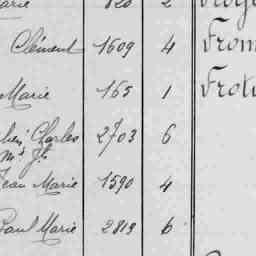 Marie 820 2
Clément 1609 4 From
Marie 165 1 Frot
Charles 2703 6
Jean Marie 1590 4
Paul Marie 2819 6